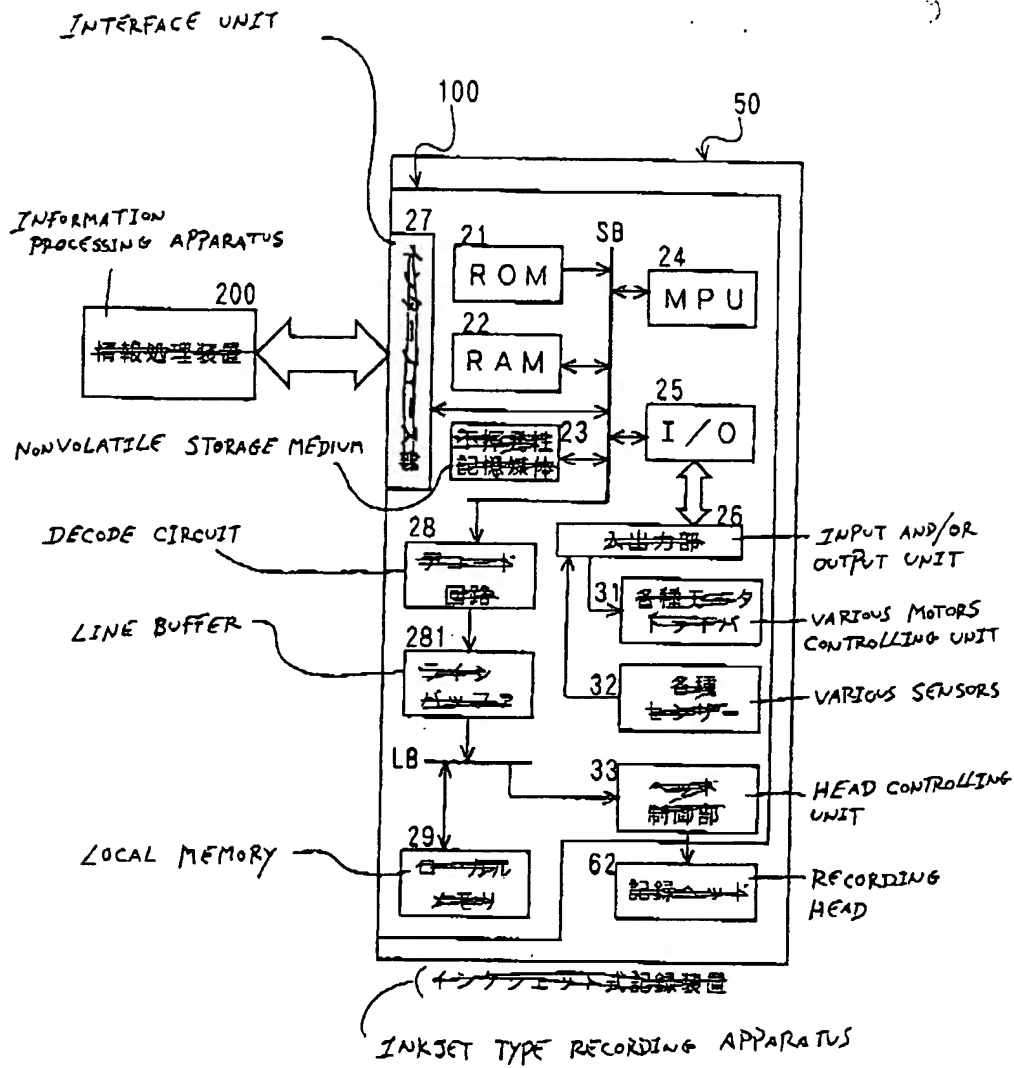 INTERFACE UNIT
100
50
INFORMATION
PROCESSING APPARATUS
27
インターフェース部
21
ROM
SB
24
MPU
200
情報処理装置
22
RAM
25
I/O
NONVOLATILE STORAGE MEDIUM
不揮発性
記憶媒体
23
DECODE CIRCUIT
28
デコード
回路
26
入出力部
INPUT AND/OR
OUTPUT UNIT
31
各種モータ
ドライバ
VARIOUS MOTORS
CONTROLLING UNIT
LINE BUFFER
281
ライン
バッファ
32
各種
センサー
VARIOUS SENSORS
LB
33
ヘッド
制御部
HEAD CONTROLLING
UNIT
LOCAL MEMORY
29
ローカル
メモリ
62
記録ヘッド
RECORDING
HEAD
(インクジェット式記録装置
INKJET TYPE RECORDING APPARATUS